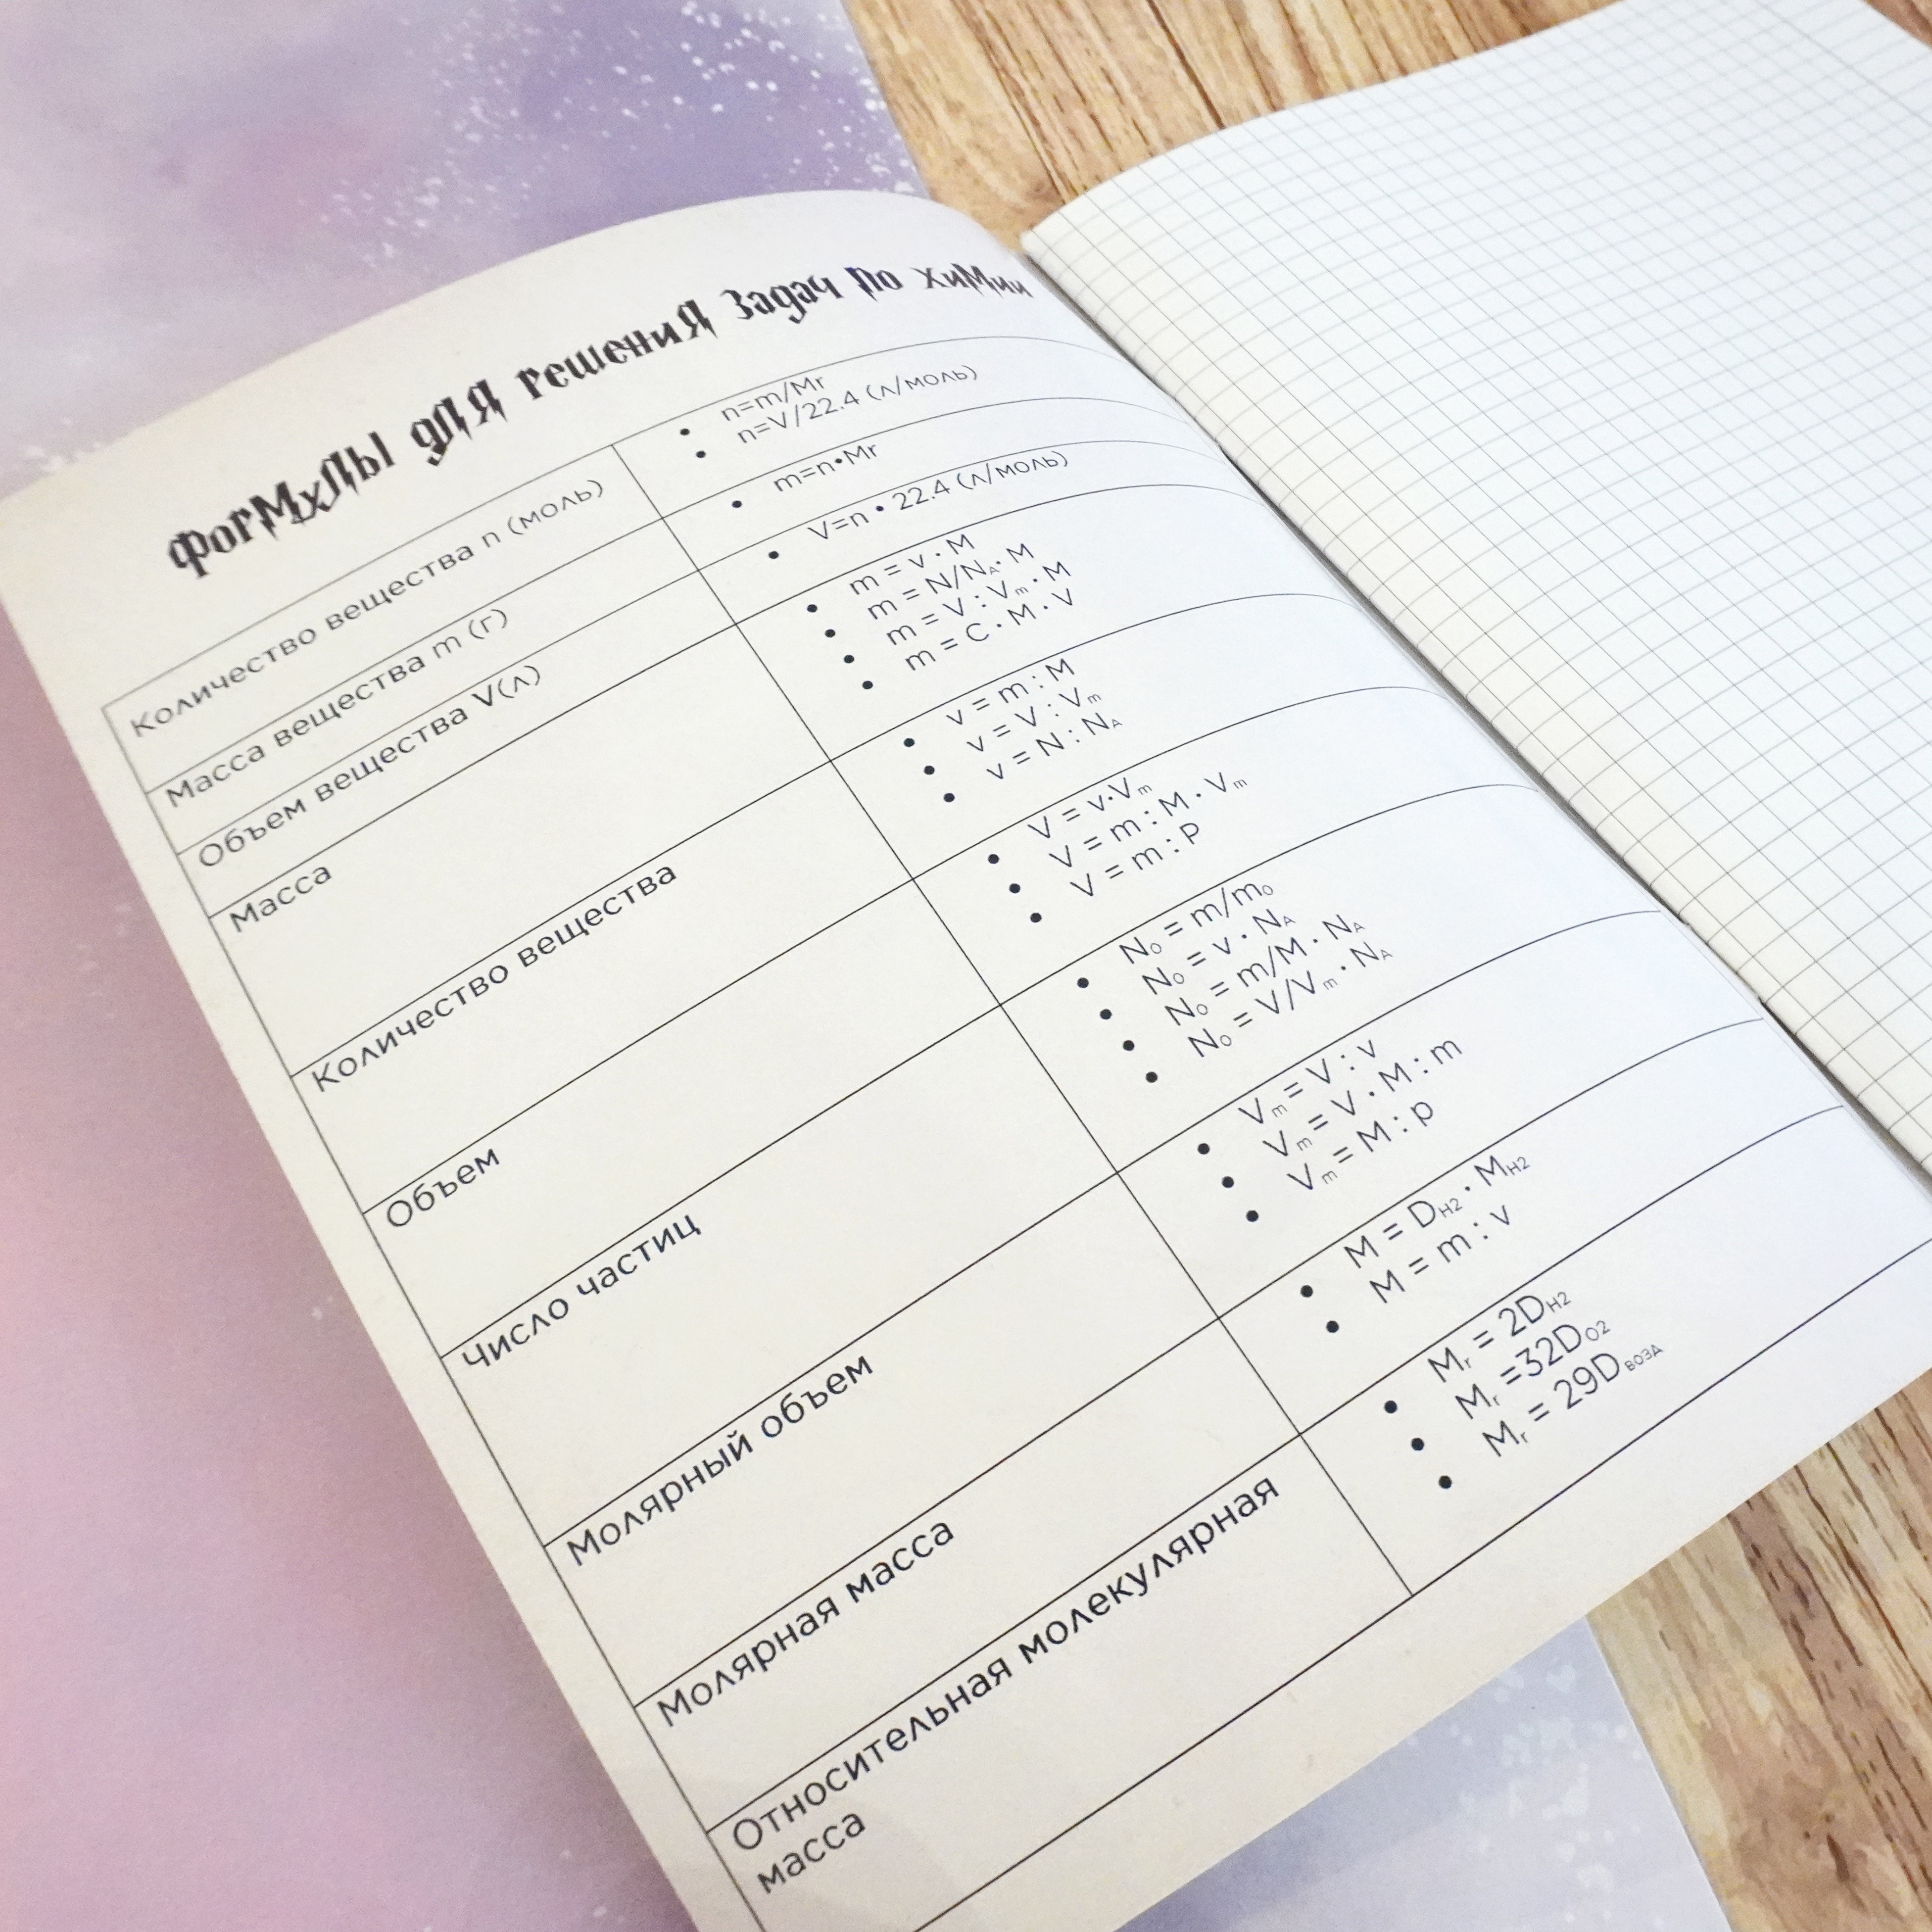 Формулы для решения задач по химии
Количество вещества n (моль)
n=m/Mr
n=V/22.4 (л/моль)
Масса вещества m (г)
m=n•Mr
Объем вещества V(л)
V=n • 22.4 (л/моль)
Масса
m = v · M
m = N/NA · M
m = V : Vm · M
m = C · M · V
Количество вещества
v = m : M
v = V : Vm
v = N : NA
Объем
V = v·Vm
V = m : M · Vm
V = m : P
Число частиц
N0 = m/m0
N0 = v · NA
N0 = m/M · NA
N0 = V/Vm · NA
Молярный объем
Vm = V : v
Vm = V · M : m
Vm = M : p
Молярная масса
M = DH2 · MH2
M = m : v
Относительная молекулярная
масса
Mr = 2DH2
Mr =32DO2
Mr = 29DВОЗД